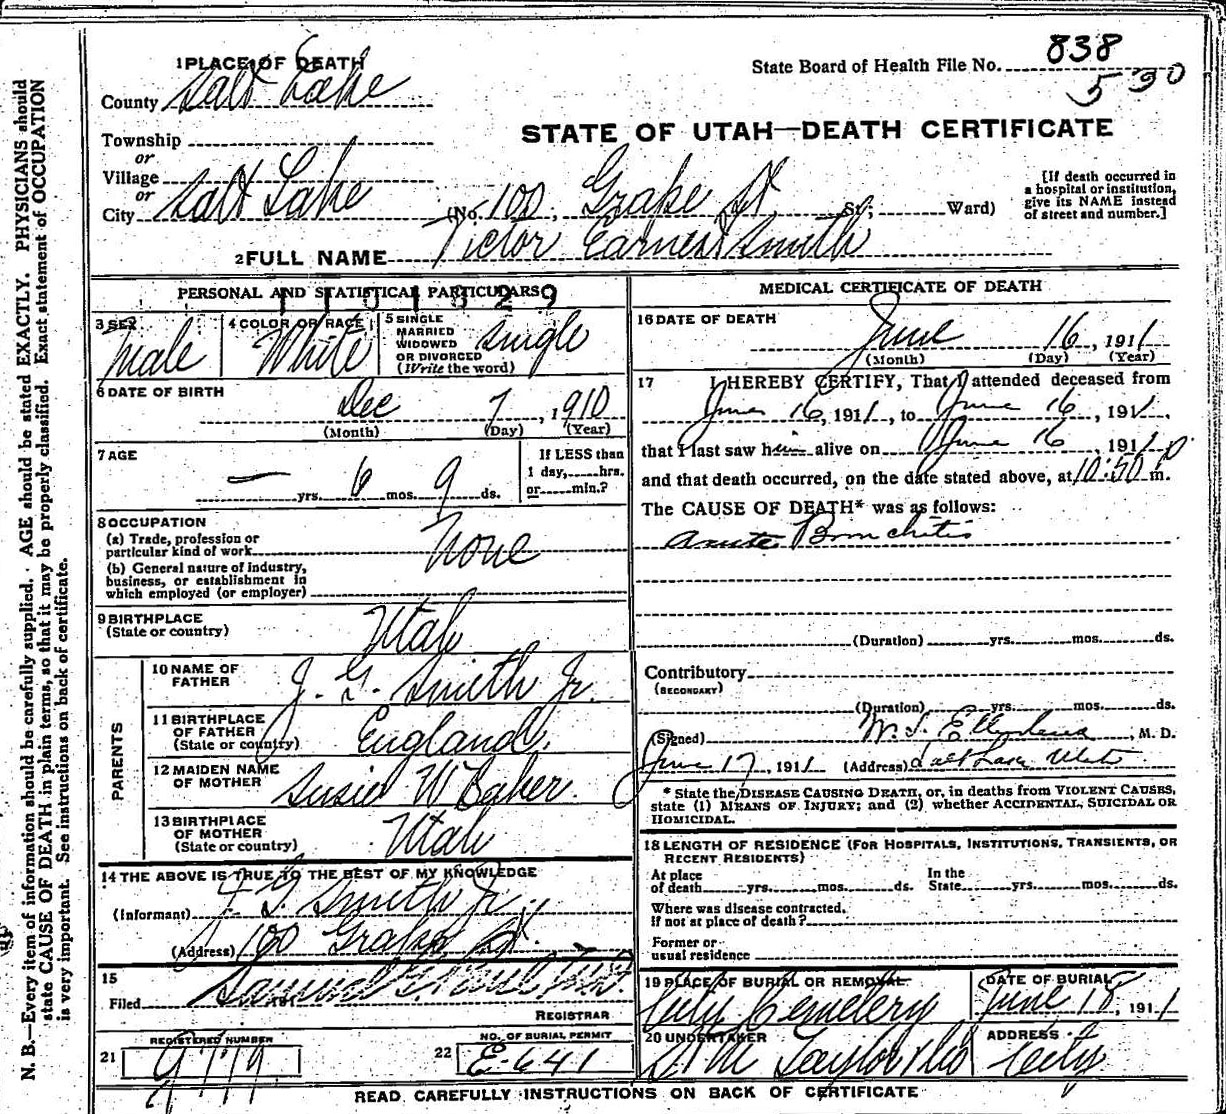 1 PLACE OF DEATH
County Salt Lake
Township
or
Village
or
City Salt Lake
State Board of Health File No. 838
530
STATE OF UTAH—DEATH CERTIFICATE
(No. 100, Grape St St; Ward)
[If death occurred in
a hospital or institution,
give its NAME instead
of street and number.]
2 FULL NAME Victor Earnest Smith
PERSONAL AND STATISTICAL PARTICULARS
1101829
3 SEX Male
4 COLOR OR RACE White
5 SINGLE
MARRIED
WIDOWED
OR DIVORCED
(Write the word) Single
6 DATE OF BIRTH
Dec 7, 1910
(Month) (Day) (Year)
7 AGE
— yrs. 6 mos. 9 ds.
If LESS than
1 day, hrs.
or min.?
8 OCCUPATION
(a) Trade, profession or
particular kind of work None
(b) General nature of industry,
business, or establishment in
which employed (or employer)
9 BIRTHPLACE
(State or country) Utah
PARENTS
10 NAME OF
FATHER J. G. Smith Jr.
11 BIRTHPLACE
OF FATHER
(State or country) England
12 MAIDEN NAME
OF MOTHER Susie W Baker.
13 BIRTHPLACE
OF MOTHER
(State or country) Utah
14 THE ABOVE IS TRUE TO THE BEST OF MY KNOWLEDGE
(Informant) J. G. Smith Jr
(Address) 100 Grape St.
15
Filed 191
Samuel G.
REGISTRAR
21 REGISTERED NUMBER
22 NO. OF BURIAL PERMIT
E-641
MEDICAL CERTIFICATE OF DEATH
16 DATE OF DEATH
June 16, 1911
(Month) (Day) (Year)
17 I HEREBY CERTIFY, That I attended deceased from
June 16, 1911, to June 16, 1911,
that I last saw him alive on June 16, 1911
and that death occurred, on the date stated above, at 10:50 P m.
The CAUSE OF DEATH* was as follows:
Acute Bronchitis
(Duration) yrs. mos. ds.
Contributory
(SECONDARY)
(Duration) yrs. mos. ds.
(Signed) W. S. , M. D.
June 17, 1911 (Address) Salt Lake Utah
* State the DISEASE CAUSING DEATH, or, in deaths from VIOLENT CAUSES,
state (1) MEANS OF INJURY; and (2) whether ACCIDENTAL, SUICIDAL OR
HOMICIDAL.
18 LENGTH OF RESIDENCE (FOR HOSPITALS, INSTITUTIONS, TRANSIENTS, OR
RECENT RESIDENTS)
At place
of death yrs. mos. ds.
In the
State yrs. mos. ds.
Where was disease contracted,
if not at place of death?
Former or
usual residence
19 PLACE OF BURIAL OR REMOVAL
City Cemetery
DATE OF BURIAL
June 18, 1911
20 UNDERTAKER
S M Taylor & Co
ADDRESS
City
READ CAREFULLY INSTRUCTIONS ON BACK OF CERTIFICATE
N. B.—Every item of information should be carefully supplied. AGE should be stated EXACTLY. PHYSICIANS should
state CAUSE OF DEATH in plain terms, so that it may be properly classified. Exact statement of OCCUPATION
is very important. See instructions on back of certificate.